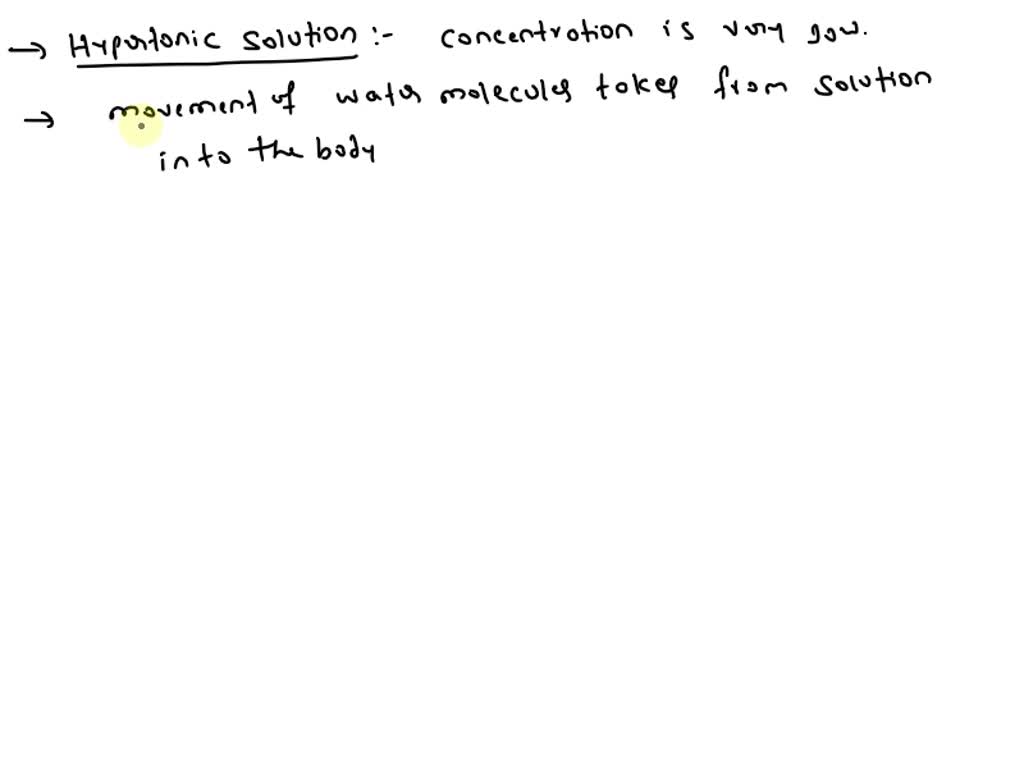 → Hypertonic Solution :- concentration is very low.
→ movement of water molecules takes from solution
into the body